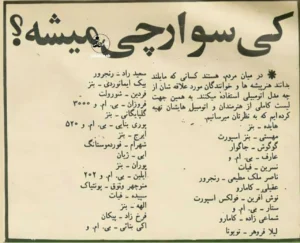 کی سوار چی میشه؟
* در میان مردم، هستند کسانی که مایلند
بدانند هنرپیشه ها و خوانندگان مورد علاقه شان از
چه مدل اتومبیلی استفاده میکنند. به همین جهت
لیست کاملی از هنرمندان و اتومبیل هایشان تهیه
کرده ایم که به نظرتان میرسانیم.
هایده - بنز
مهستی - بنز اسپورت
گوگوش - جاگوار
عارف - بی. ام. و
نسرین - فیات
ناصر ملک مطیعی - رنجرور
عقیلی - کامارو
نوش آفرین - فولکس اسپورت
ستار - بی. ام. و
شماعی زاده - کامارو
لیلا فروهر - تویوتا
سعید راد - رنجرور
بیک ایمانوردی - بنز
فردین - شورولت
فروزان - بی. ام. و ۳۰۰۰
گلپایگانی - بنز
پوری بنایی - بی. ام. و ۵۲۰
ایرج - بنز
شهرام - فوردموستانگ
آپی - ژیان
پوران - بنز
آیلین - بی. ام. و ۲۰۲
منوچهر وثوق - پونتیاک
سپیده - فیات
الهه - بنز
فرخ زاد - پیکان
اکی بنائی - بی. ام. و